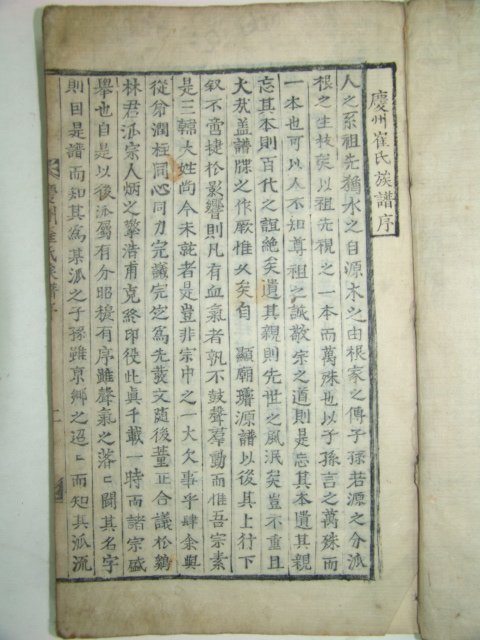 慶州崔氏族譜序
人之系祖先猶水之自源木之由根家之傳子孫若源之分派
根之生枝炭以祖先視之一本而萬殊也以子孫言之萬殊而
一本也可以人不知尊祖之誠敬宗之道則是忘其本遺其親
忘其本則百代之誼絶矣遺其親則先世之風泯矣豈不重且
大哉盖譜牒之作厥惟久矣自 顯廟璿源譜以後其上行下
效不啻捷於影響則凡有血氣者孰不鼓聲羣動而惟吾宗素
是三韓大姓尚今未就者是豈非宗中之一大欠事乎肆余與
從爺潤柱同心同力完議完定爲先發文随後董正合議於鷄
林君派宗人炳之擎浩甫克終印役此眞千載一時而諸宗盛
擧也自是以後派屬有分昭穆有序雖聲氣之落〻闕其名字
則因是譜而知其爲某派之子孫雖京鄕之迢〻而知其派流
慶州崔氏族譜序
二